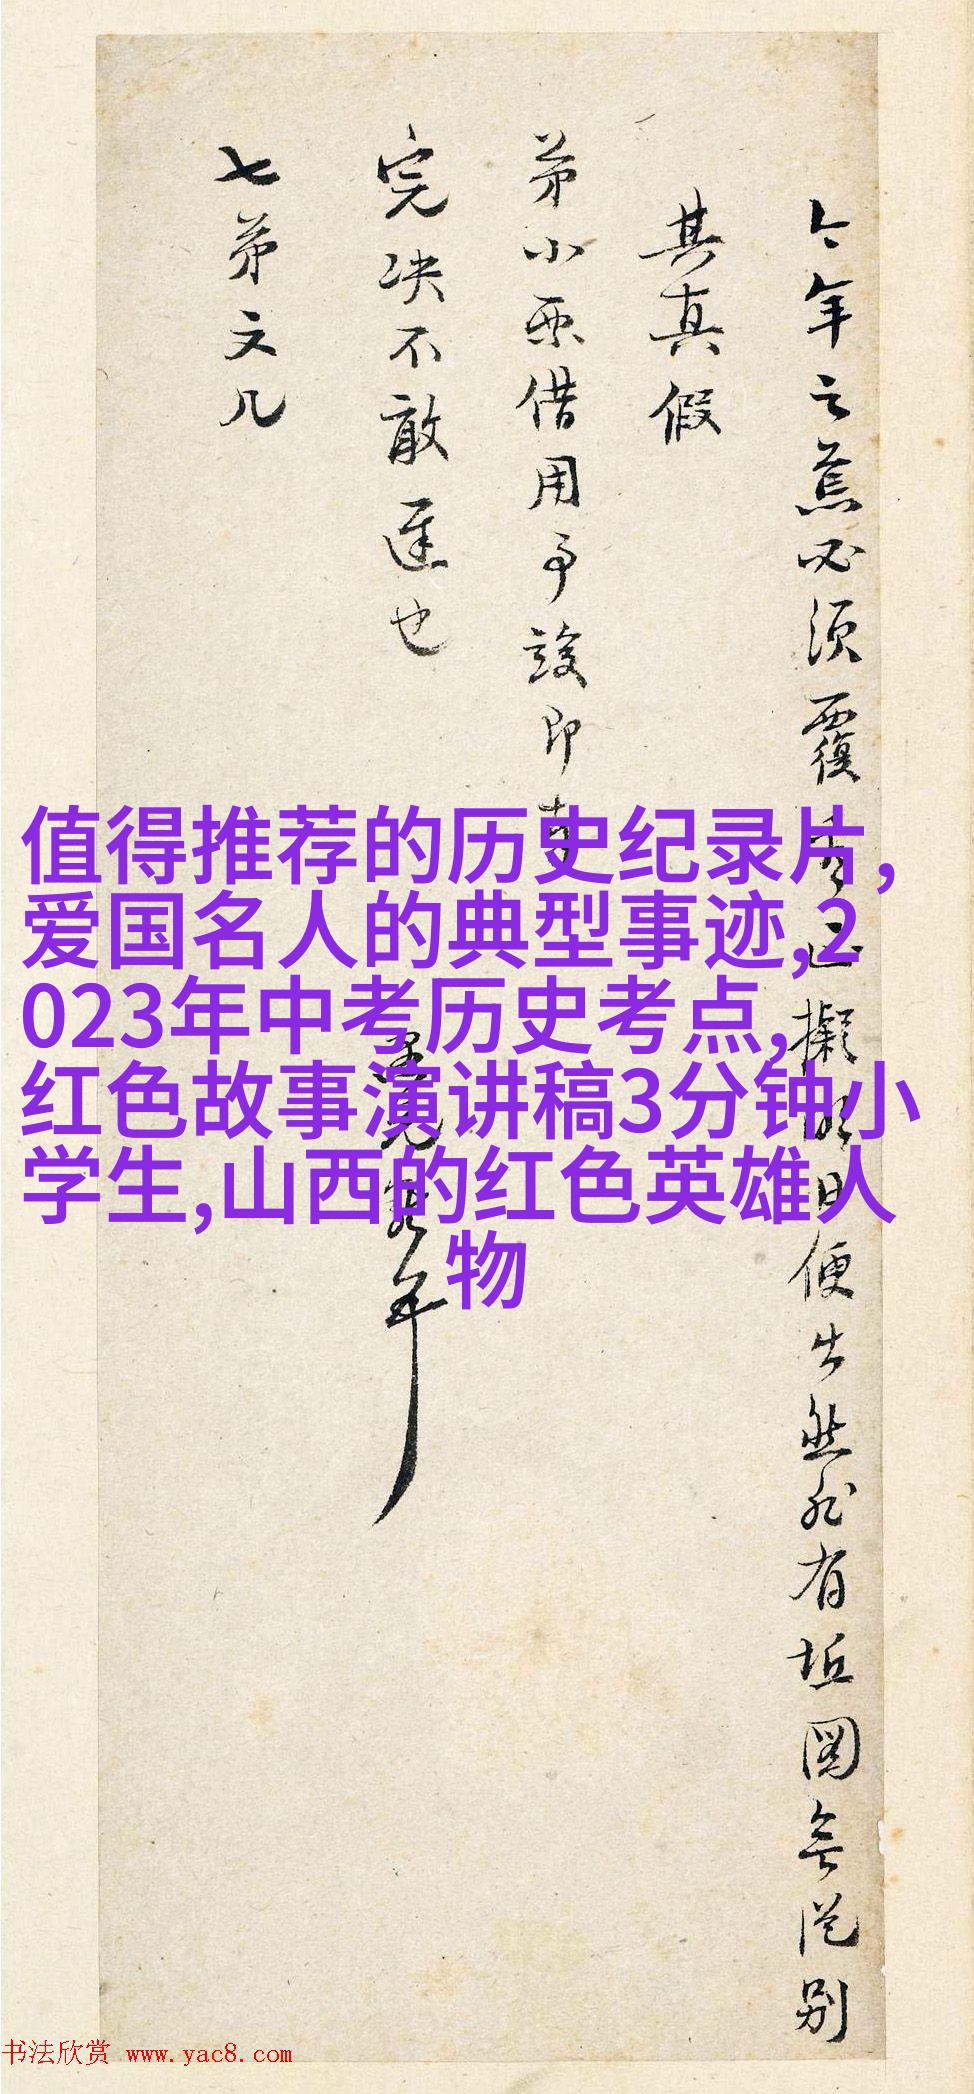 今年之蕉必须覆
拟明日便出然非有坵图无从别
其真假
弟小票借用事竣即
完决不敢迟也
七弟文几
兄 年
值得推荐的历史纪录片,
爱国名人的典型事迹,2
023年中考历史考点,
红色故事演讲稿3分钟小
学生,山西的红色英雄人
物
书法欣赏 www.yac8.com